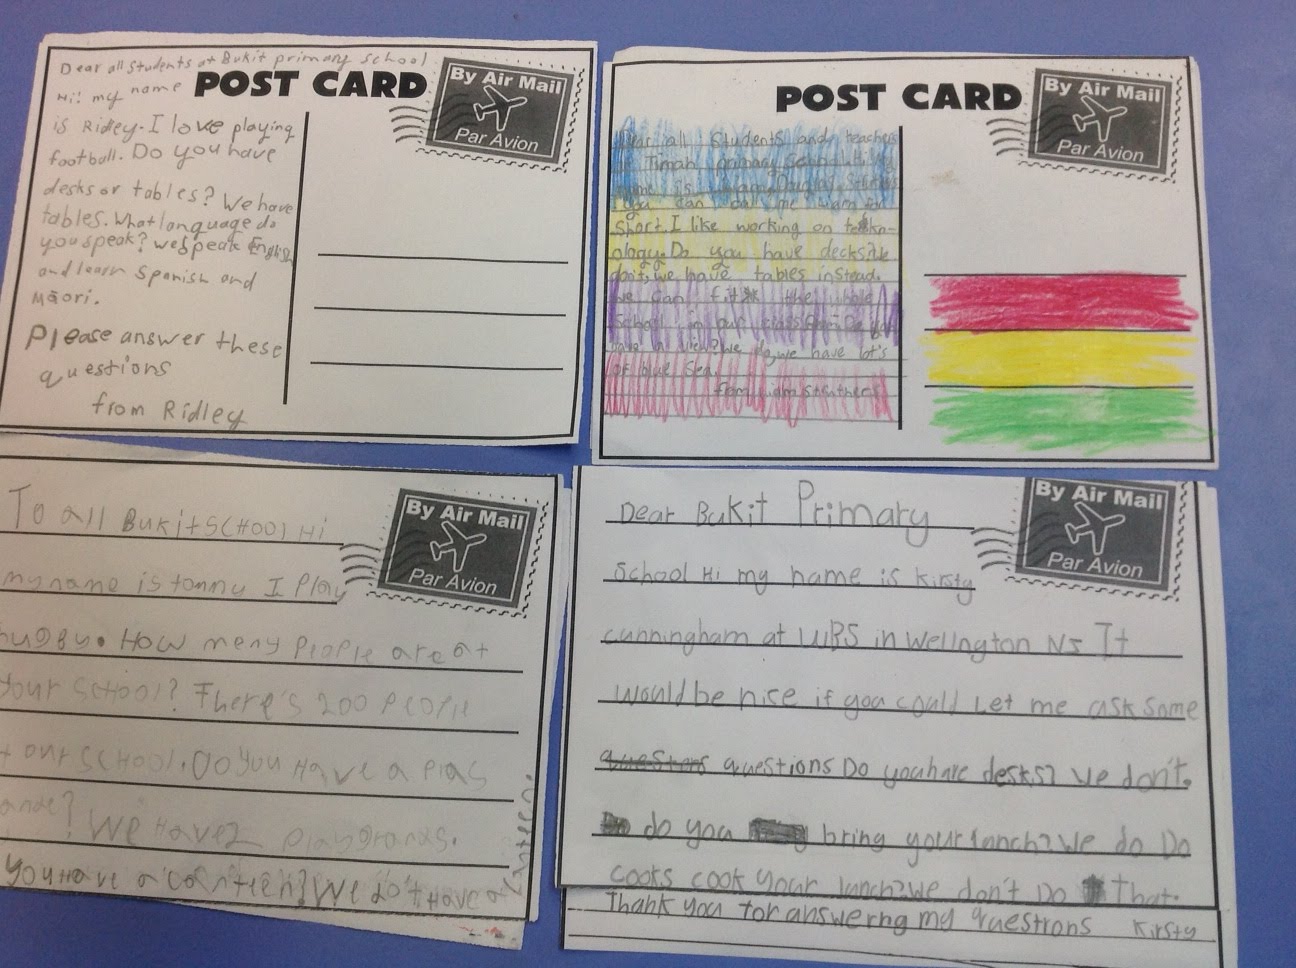 Dear all Students at Bukit primary School
POST CARD
By Air Mail
Par Avion
Hi! my name
is Ridley. I love playing
football. Do you have
desks or tables? We have
tables. What language do
you speak? we speak English
and learn Spanish and
Māori.
Please answer these
questions
from Ridley
POST CARD
By Air Mail
Par Avion
Dear all Students and teachers
at Timah primary School. Hi My
name is
you can call me
for
Short. I like working on tekn-
ology. Do you have decks? We
don't, we have tables instead.
We can fit the whole
School in our classroom. Do you
have a
? We do, we have lot's
of blue Sea.
from
Struthers
To all Bukit SCHOOl Hi
my name is tommy I Play
rugby. How meny PeoPle are at
your SCHOOl? There's 200 PeoPle
t our SCHOOl. Do you Have a Plag
ande? We Have 2 Playgrands.
You Have a canteen? We do't Have a
canteen.
By Air Mail
Par Avion
Dear Bukit Primary
School Hi my name is Kirsty
cunningham at WBS in Wellington NZ It
would be nice if you could Let me ask Some
questions Do you have desks? We don't.
do you bring your lunch? We do Do
cooks cook your lunch? We don't Do That.
Thank you for answerng my questions Kirsty
By Air Mail
Par Avion